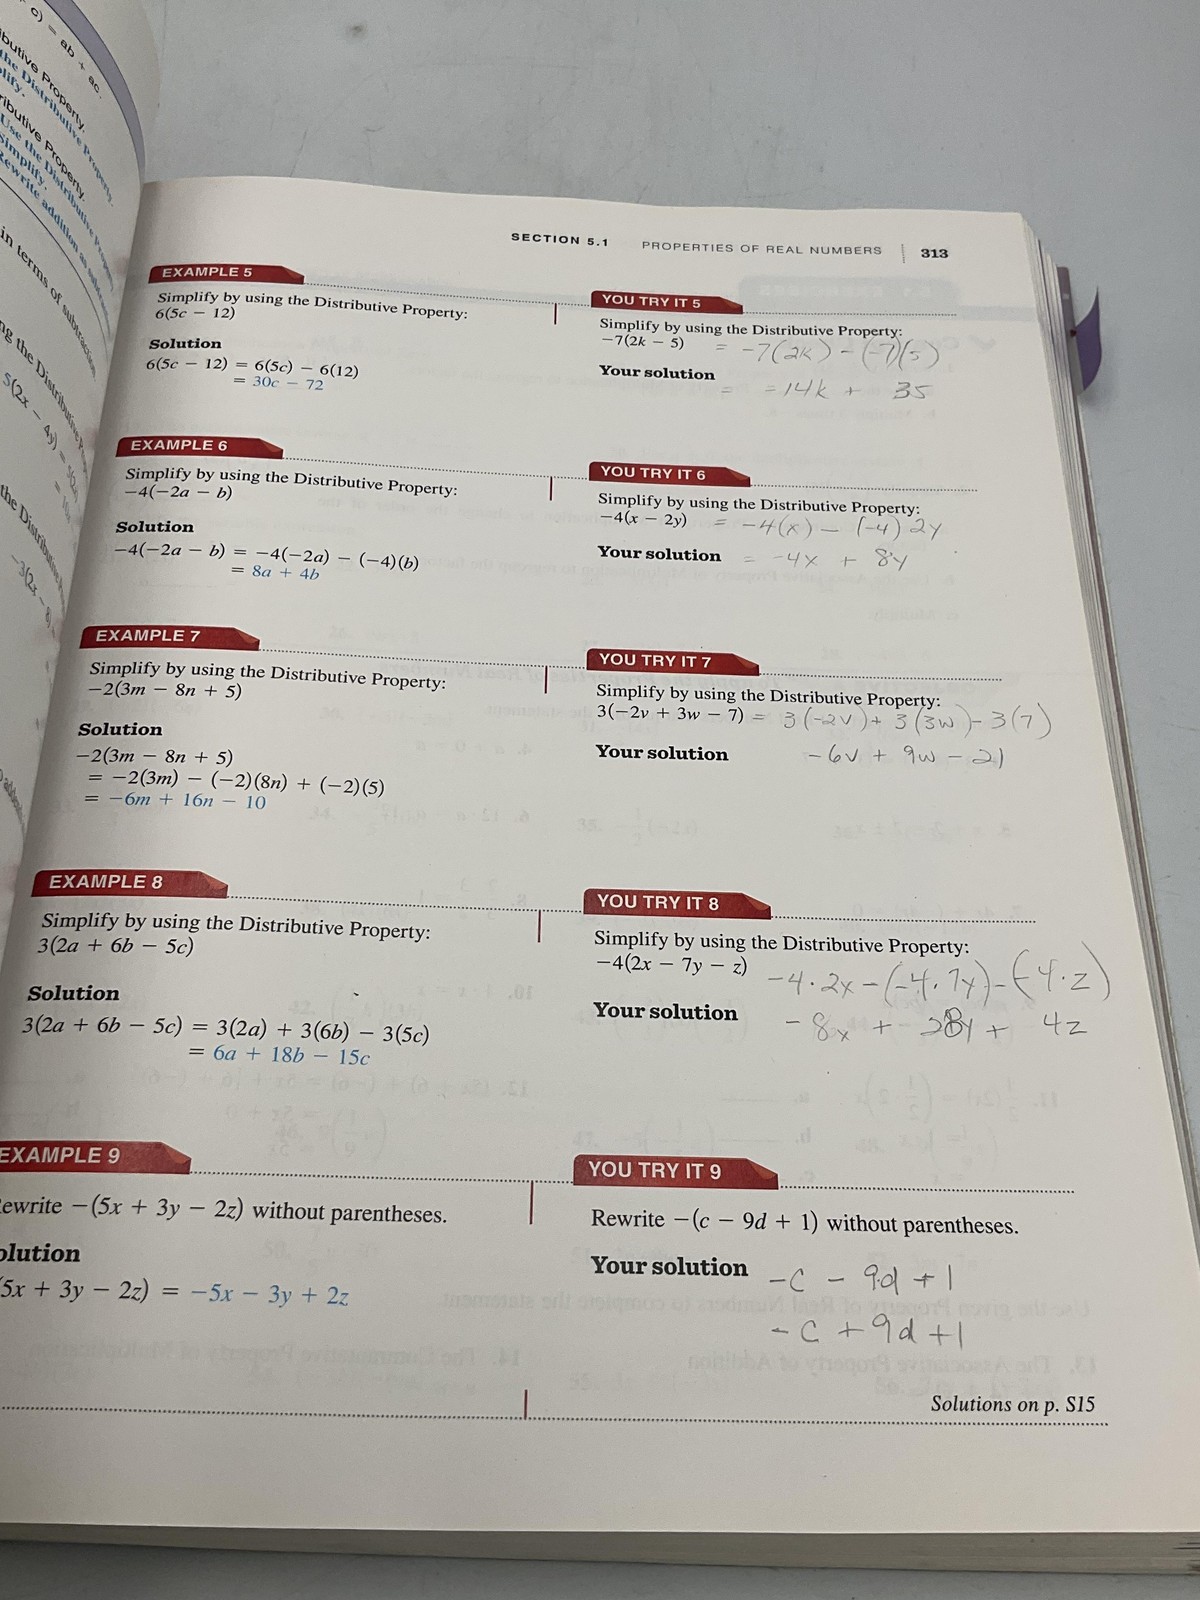 c) = ab + ac.
ributive Property.
the Distributive Property.
plify.
ributive Property.
Use the Distributive Property.
Simplify.
Rewrite addition as
in terms of subtraction
ng the Distributive
5(2x − 4y) = 5(2x)
the Distributive
−3(2x − 8)
SECTION 5.1 PROPERTIES OF REAL NUMBERS 313
EXAMPLE 5
Simplify by using the Distributive Property:
6(5c − 12)
Solution
6(5c − 12) = 6(5c) − 6(12)
= 30c − 72
YOU TRY IT 5
Simplify by using the Distributive Property:
−7(2k − 5) = −7(2k) − (−7)(5)
Your solution
= =14k + 35
EXAMPLE 6
Simplify by using the Distributive Property:
−4(−2a − b)
Solution
−4(−2a − b) = −4(−2a) − (−4)(b)
= 8a + 4b
YOU TRY IT 6
Simplify by using the Distributive Property:
−4(x − 2y) = −4(x) − (−4) 2y
Your solution = −4x + 8y
EXAMPLE 7
Simplify by using the Distributive Property:
−2(3m − 8n + 5)
Solution
−2(3m − 8n + 5)
= −2(3m) − (−2)(8n) + (−2)(5)
= −6m + 16n − 10
YOU TRY IT 7
Simplify by using the Distributive Property:
3(−2v + 3w − 7) = 3(−2v) + 3(3w) − 3(7)
Your solution −6v + 9w − 21
EXAMPLE 8
Simplify by using the Distributive Property:
3(2a + 6b − 5c)
Solution
3(2a + 6b − 5c) = 3(2a) + 3(6b) − 3(5c)
= 6a + 18b − 15c
YOU TRY IT 8
Simplify by using the Distributive Property:
−4(2x − 7y − z) −4·2x − (−4·7y) − (−4·z)
Your solution −8x + 28y + 4z
EXAMPLE 9
ewrite −(5x + 3y − 2z) without parentheses.
olution
(5x + 3y − 2z) = −5x − 3y + 2z
YOU TRY IT 9
Rewrite −(c − 9d + 1) without parentheses.
Your solution −c − 9d + 1
−c + 9d + 1
Solutions on p. S15